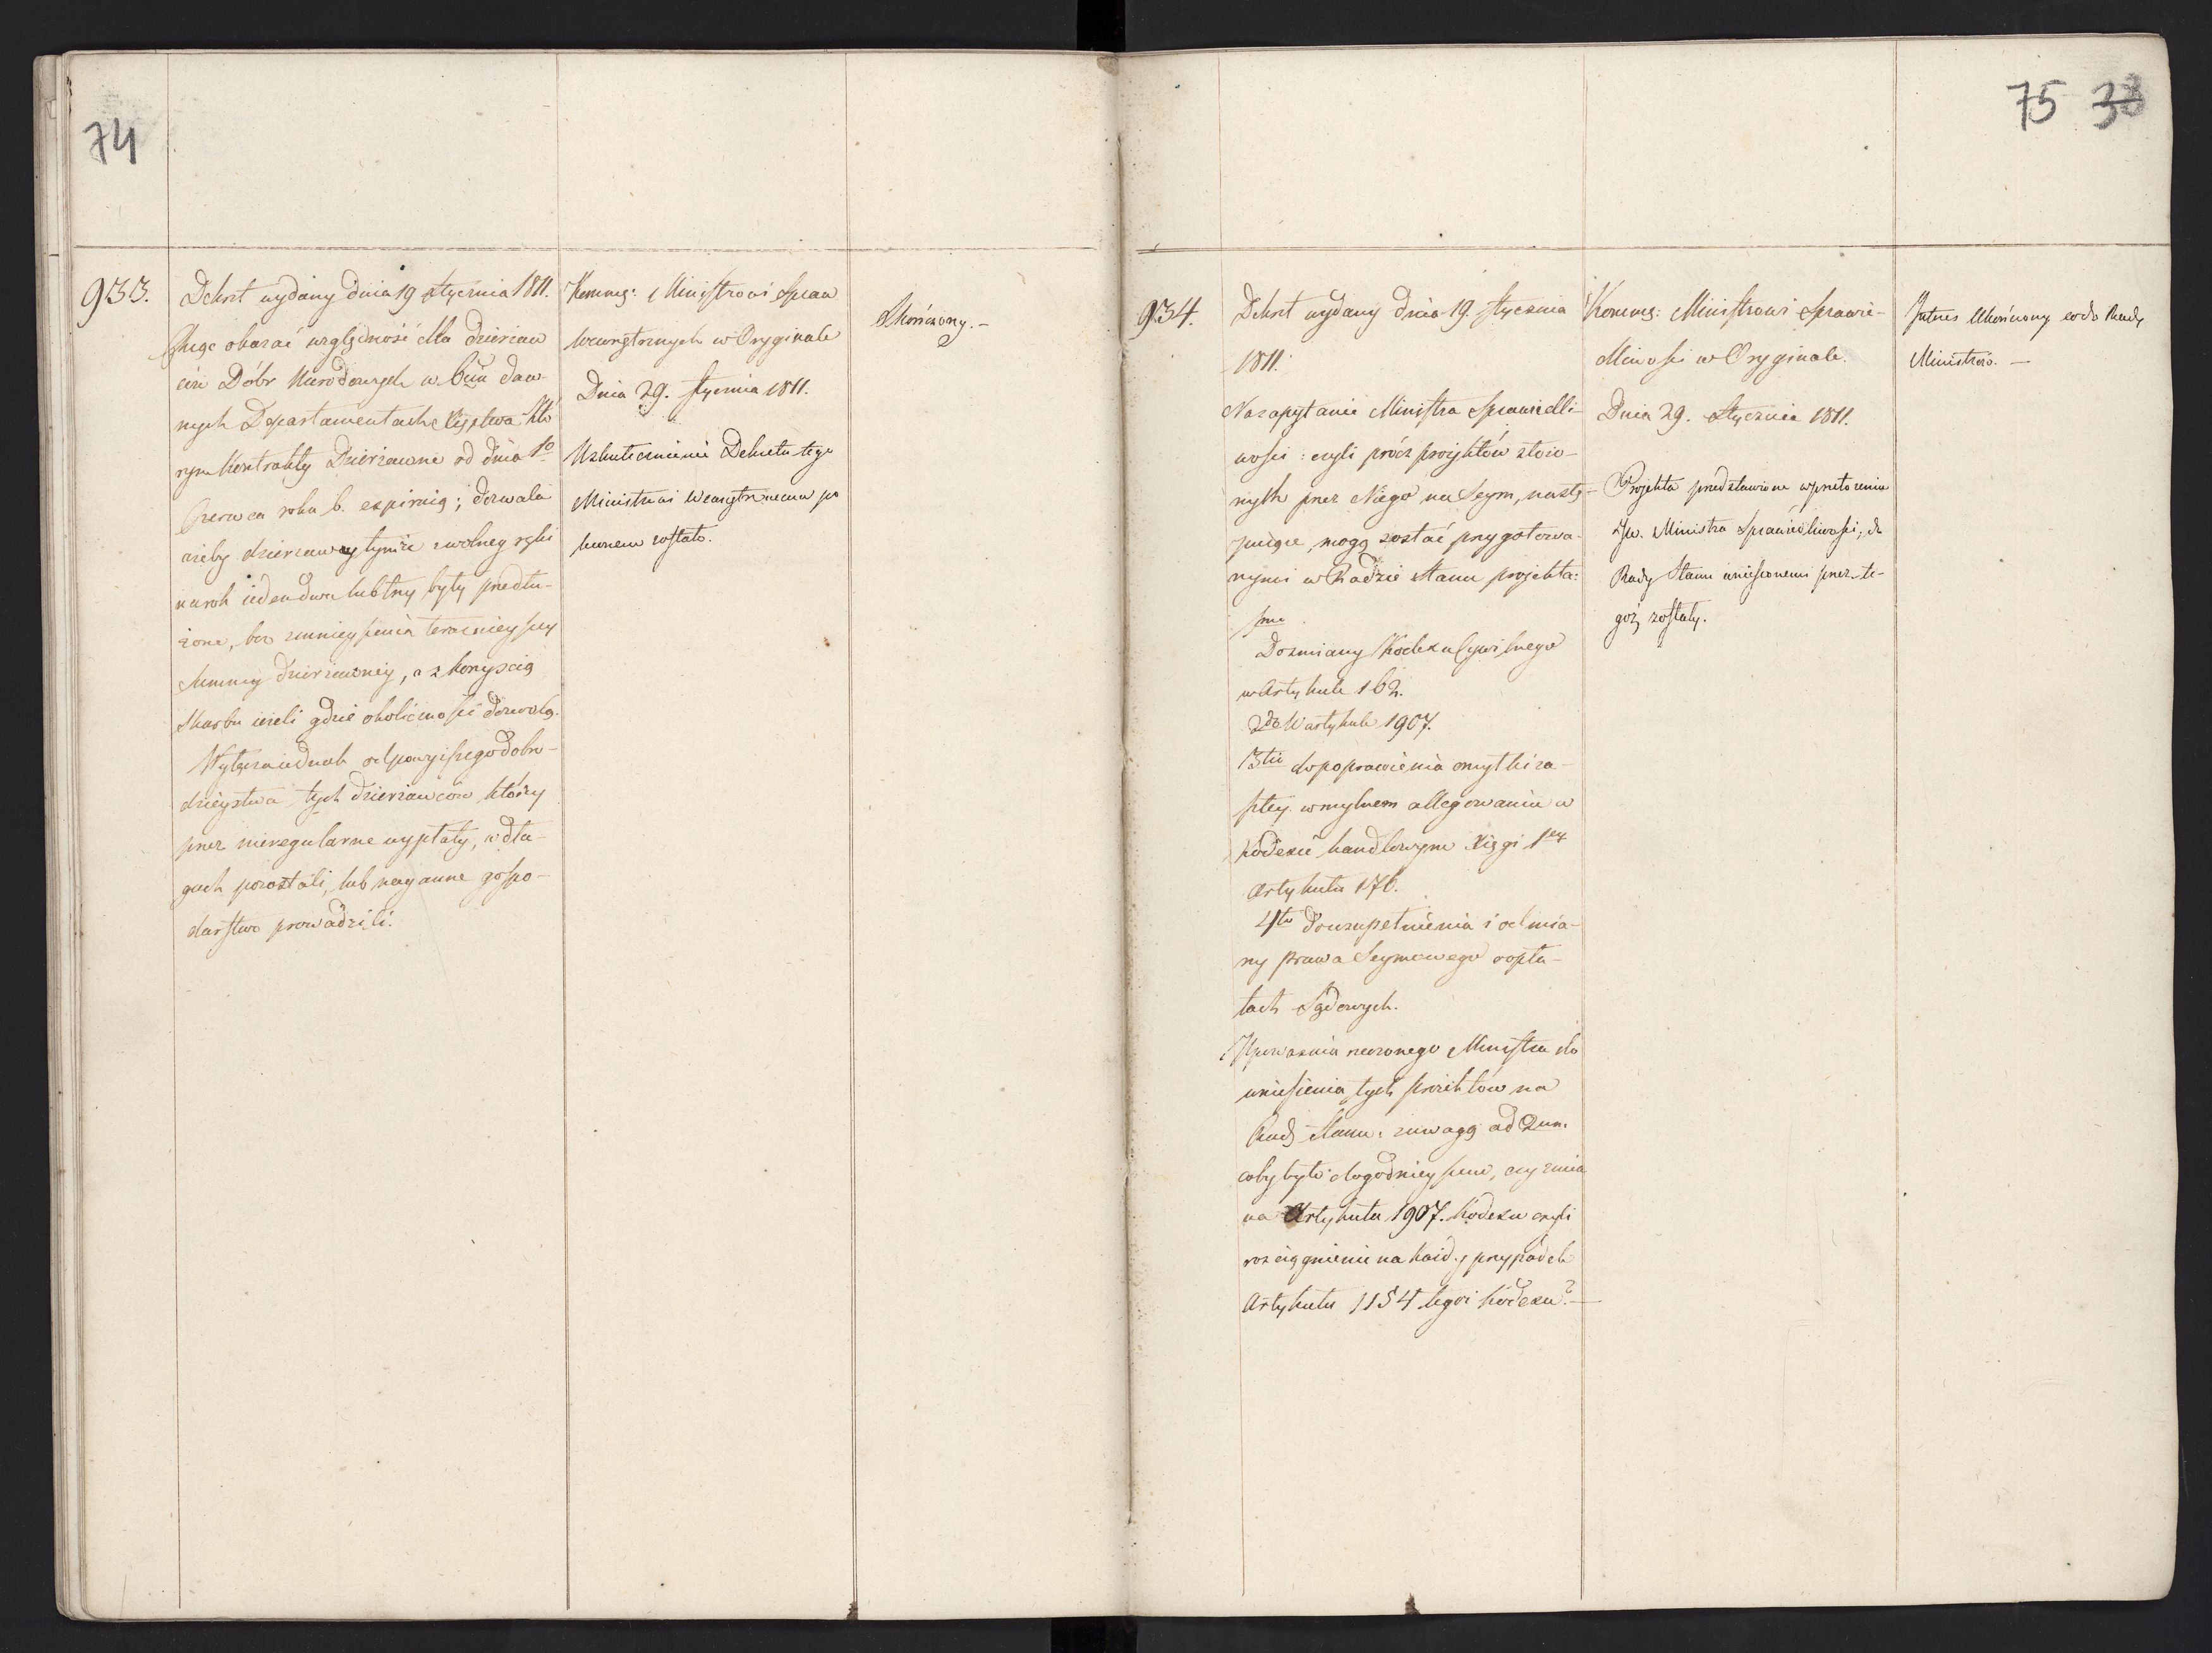 74
933.
Dekret wydany dnia 19 stycznia 1811.
Chcąc okazać względność dla dzierżaw
ców Dóbr Narodowych w 6ciu daw-
nych Departamentach Xięstwa któ
rym kontrakty Dzierżawne od dnia 1o
Czerwca roku b. expirują; dozwala
ażeby dzierżawy tymże z wolney ręki
na rok ieden dwa lub trzy były przedłu-
żone, bez zmnieyszenia teraznieyszey
Summy dzierżawney, a z korzyścią
Skarbu ieżeli gdzie okoliczności dozwolą.
Wyłącza iednak od powyższego dobro-
dzieystwa tych dzierżawców którzy
przez nieregularne wypłaty, w dłu-
gach pozostali, lub naganne gospo-
darstwo prowadzili.
Kommg: Ministrowi Spraw
Wewnętrznych w Oryginale
Dnia 29. stycznia 1811.
Uskutecznienie Dekretu tego
Ministrowi Wewnętrznemu po
lecone zostało.
Skończony.-
75 38
934.
Dekret wydany dnia 19. stycznia
1811.
Na zapytanie Ministra Sprawiedli-
wości: czyli prócz proiektów złożo-
nych przez Niego na Seym, nastę-
puiące mogą zostać przygotowa-
nymi w Radzie Stanu projekta:
1mo
Do zmiany Kodexu Cywilnego
w Artykule 162.
2do W artykule 1907.
3tio do poprawienia omyłki za-
szłey w mylnem allegowaniu w
Kodexie handlowym Xięgi 1ey
Artykułu 176.
4to Do uzupełnienia i odmia-
ny prawa Seymowego o opła-
tach Sądowych.
Upoważnia rzeczonego Ministra do
wniesienia tych proiektów na
Radę Stanu z uwagą ad 2um.
coby było dogodnieysze, czy zmia
na Artykułu 1907. Kodexu czyli
rozciągnienie na każdy przypadek
Artykułu 1154 tegoż kodexu?-
Kommg: Ministrowi Sprawie-
dliwości w Oryginale.
Dnia 29. Stycznia 1811.
Projekta przedstawione w przełożeniu
JW. Ministra Sprawiedliwości, do
Rady Stanu wniesionemi przez te-
goż zostały.
Interes Ukończony co do Rady
Ministrów. -